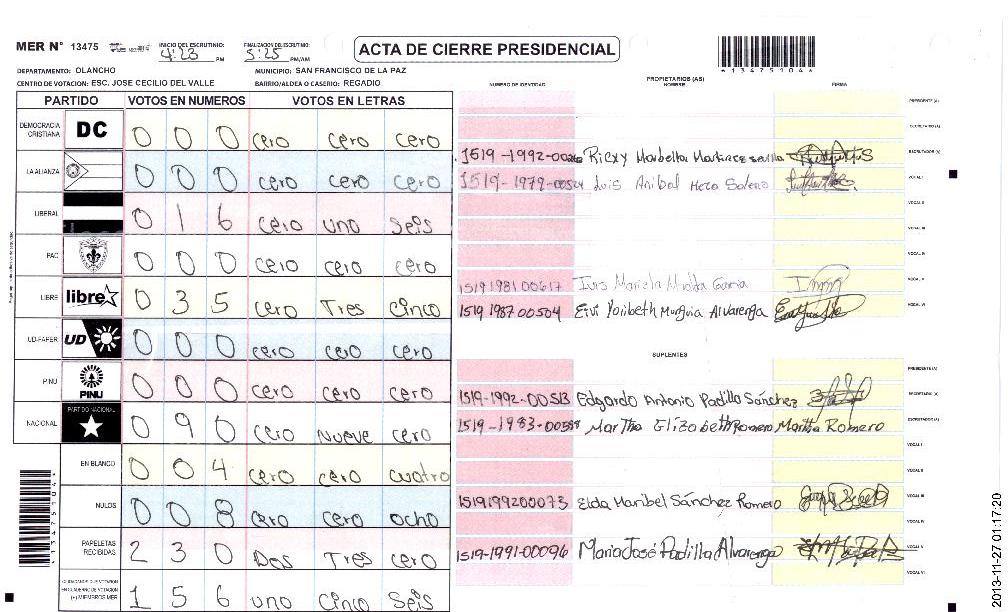 MER N° 13475
INICIO DEL ESCRUTINIO: 4:23 PM
FINALIZACION DEL ESCRUTINIO: 5:25 PM/AM
ACTA DE CIERRE PRESIDENCIAL
*13475104*
DEPARTAMENTO: OLANCHO
MUNICIPIO: SAN FRANCISCO DE LA PAZ
CENTRO DE VOTACION: ESC. JOSE CECILIO DEL VALLE
BARRIO/ALDEA O CASERIO: REGADIO
PARTIDO VOTOS EN NUMEROS VOTOS EN LETRAS
DEMOCRACIA CRISTIANA DC 0 0 0 cero cero cero
LA ALIANZA 0 0 0 cero cero cero
LIBERAL 0 1 6 cero uno seis
PAC 0 0 0 cero cero cero
LIBRE libre 0 3 5 cero Tres cinco
UD-FAPER UD 0 0 0 cero cero cero
PINU PINU 0 0 0 cero cero cero
NACIONAL PARTIDO NACIONAL 0 9 0 cero Nueve cero
EN BLANCO 0 0 4 cero cero cuatro
NULOS 0 0 8 cero cero ocho
PAPELETAS RECIBIDAS 2 3 0 Dos Tres cero
CIUDADANOS QUE VOTARON EN CUADERNO DE VOTACION (+) MIEMBROS MER 1 5 6 uno cinco seis
*13475104*
PROPIETARIOS (AS)
NUMERO DE IDENTIDAD NOMBRE FIRMA
PRESIDENTE (A)
SECRETARIO (A)
Martinez ESCRUTADOR (A)
1519-1979-00524 Luis Anibal Meza VOCAL I
VOCAL II
VOCAL III
VOCAL IV
1519198100617 Iris Mariela Garcia VOCAL V
1519 1987 00504 Yoribeth Murguia Alvarenga VOCAL VI
SUPLENTES
PRESIDENTE (A)
1519-1992-00513 Edgardo Antonio Padilla Sánchez SECRETARIO (A)
1519-1983-00588 Martha Elizabeth Romero Martha Romero ESCRUTADOR (A)
VOCAL I
VOCAL II
1519199200073 Elda Maribel Sánchez Romero VOCAL III
VOCAL IV
1519-1991-00096 Maria José Padilla Alvarenga VOCAL V
VOCAL VI
2013-11-27 01:17:20